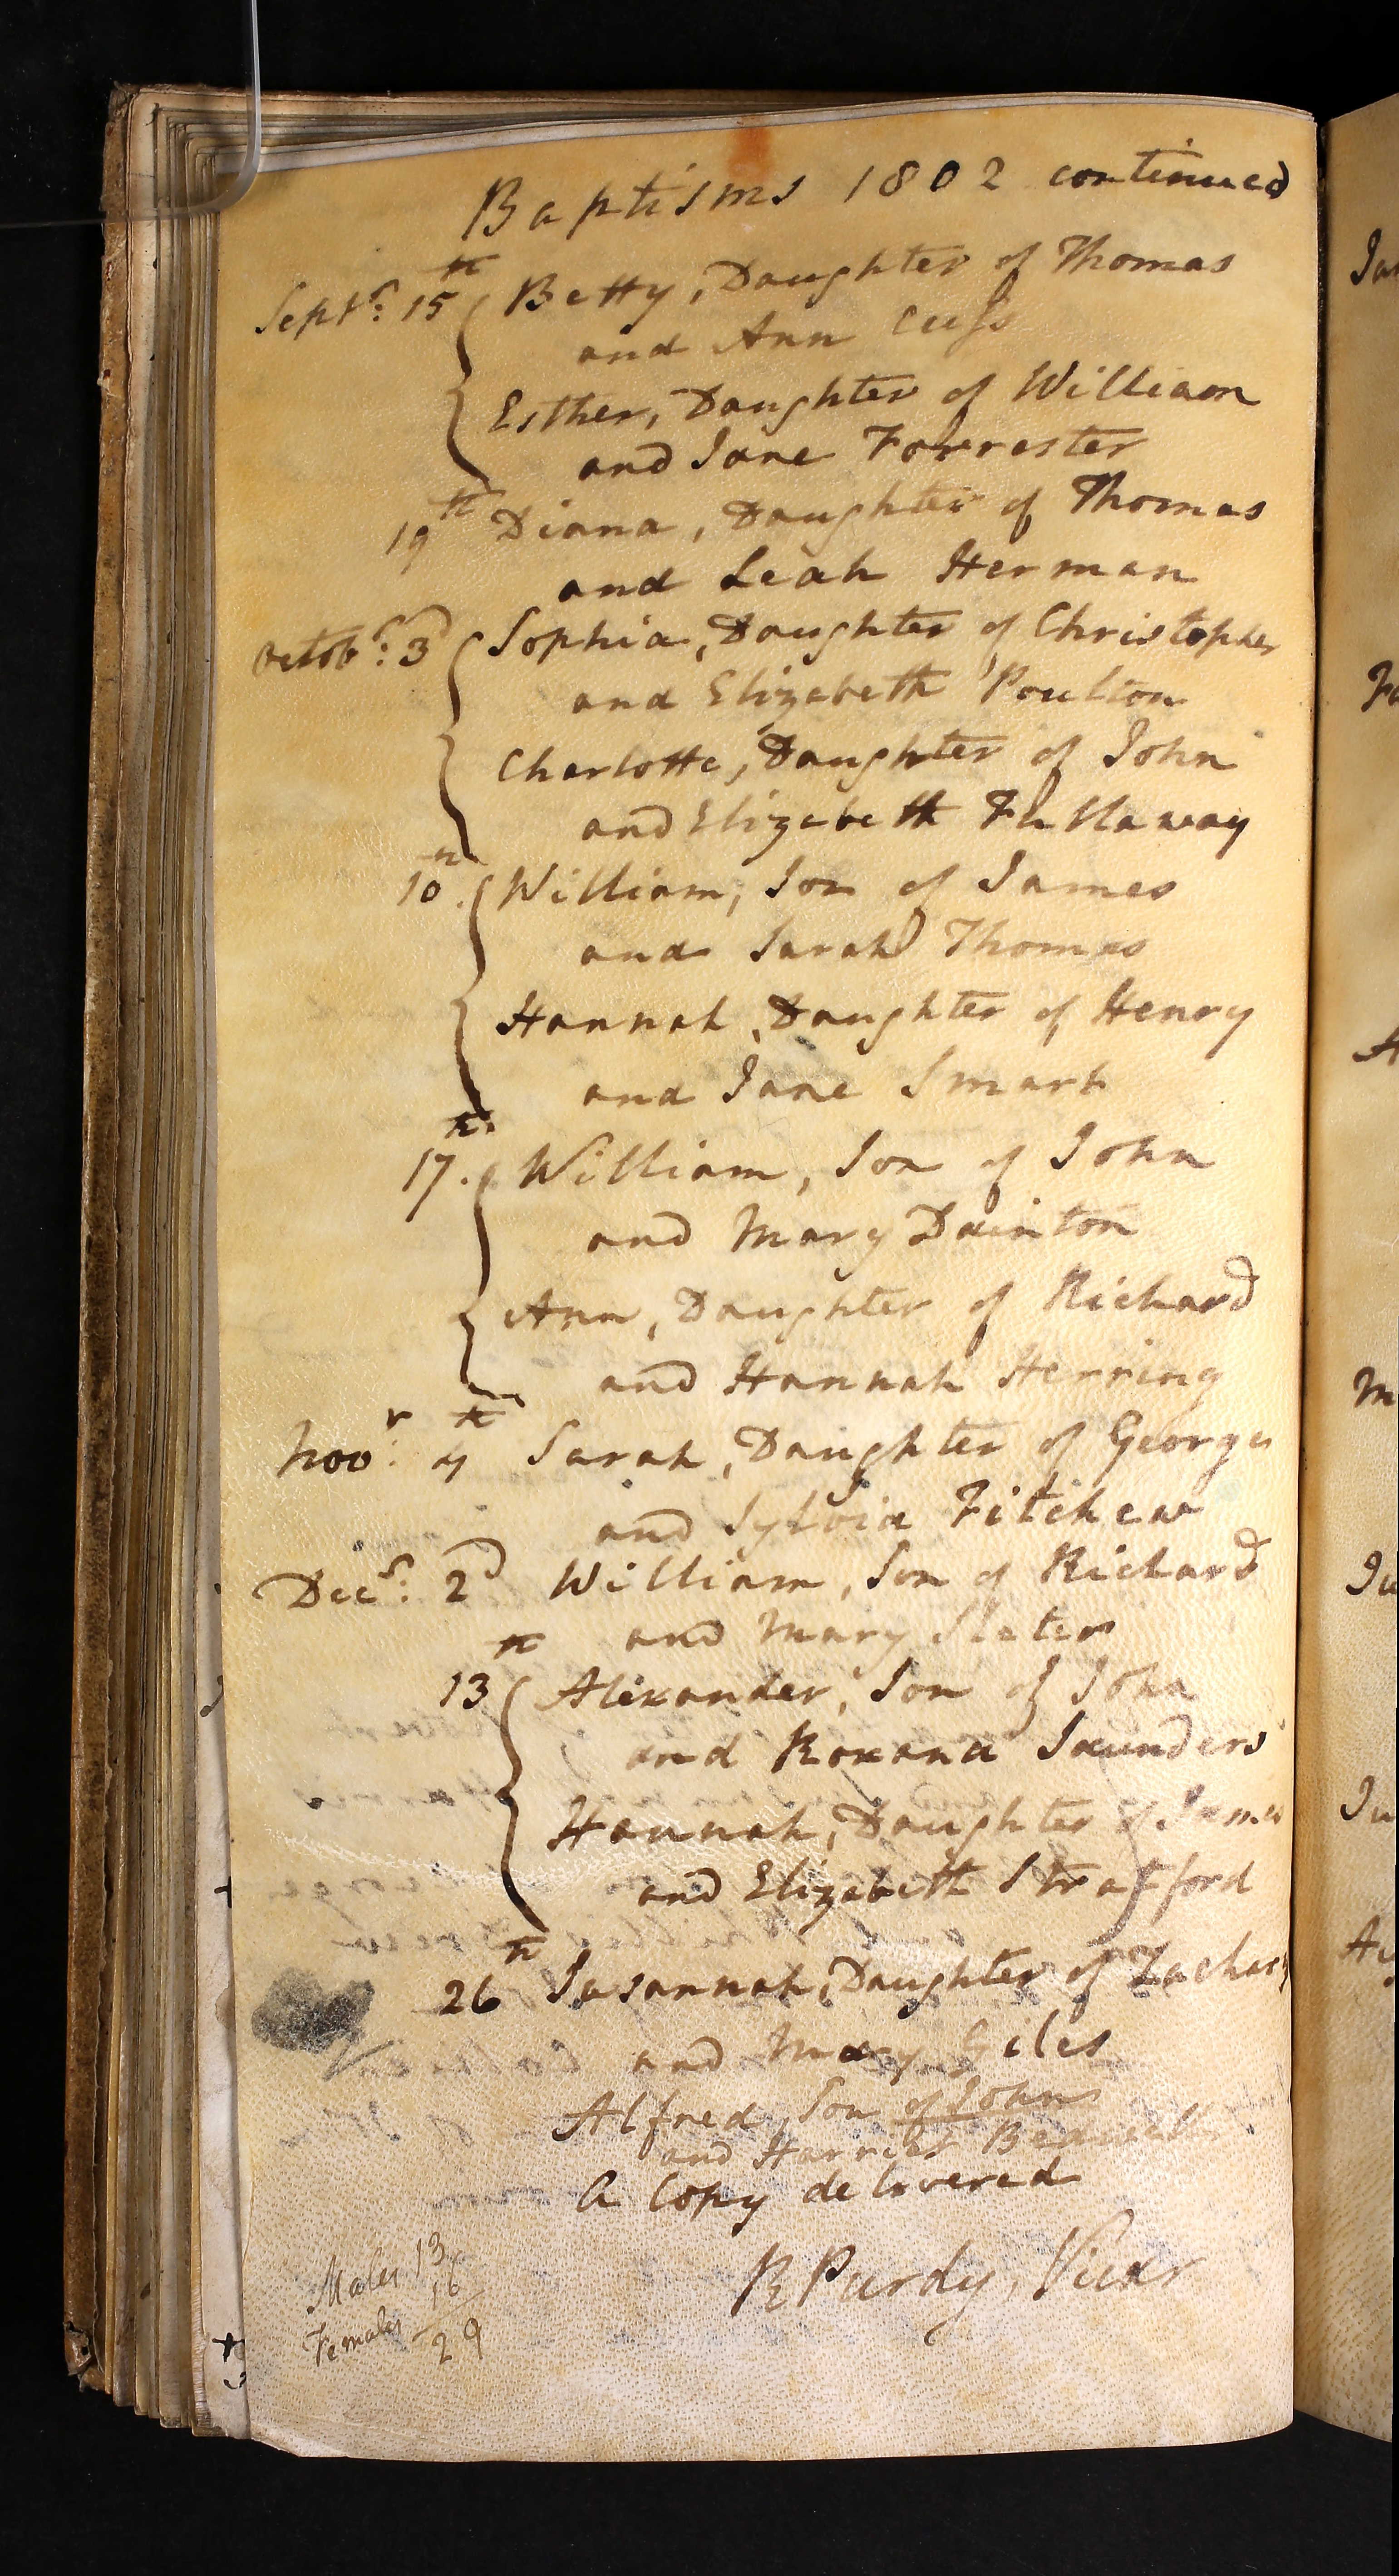 Baptisms 1802 continued
Septr: 15th Betty, Daughter of Thomas
and Ann Cuss
Esther, Daughter of William
and Jane Forrester
19th Diana, Daughter of Thomas
and Leah Herman
Octobr: 3d Sophia, Daughter of Christopher
and Elizabeth Poulton
Charlotte, Daughter of John
and Elizabeth Fullaway
10th. William, Son of James
and Sarah Thomas
Hannah, Daughter of Henry
and Jane Smart
17th. William, Son of John
and Mary Dainton
Ann, Daughter of Richard
and Hannah Herring
Novr: 4th Sarah, Daughter of George
and Sylvia Fitchew
Decr: 2d William, Son of Richard
and Mary Slater
13th Alexander, Son of John
and Roxana Saunders
Hannah, Daughter of James
and Elizabeth Strafford
26th Susannah, Daughter of Zachary
and Mary Giles
Alfred, Son of John
and Harriet
A Copy delivered
R Purdy, Vicar
Males 13
Females 16
29